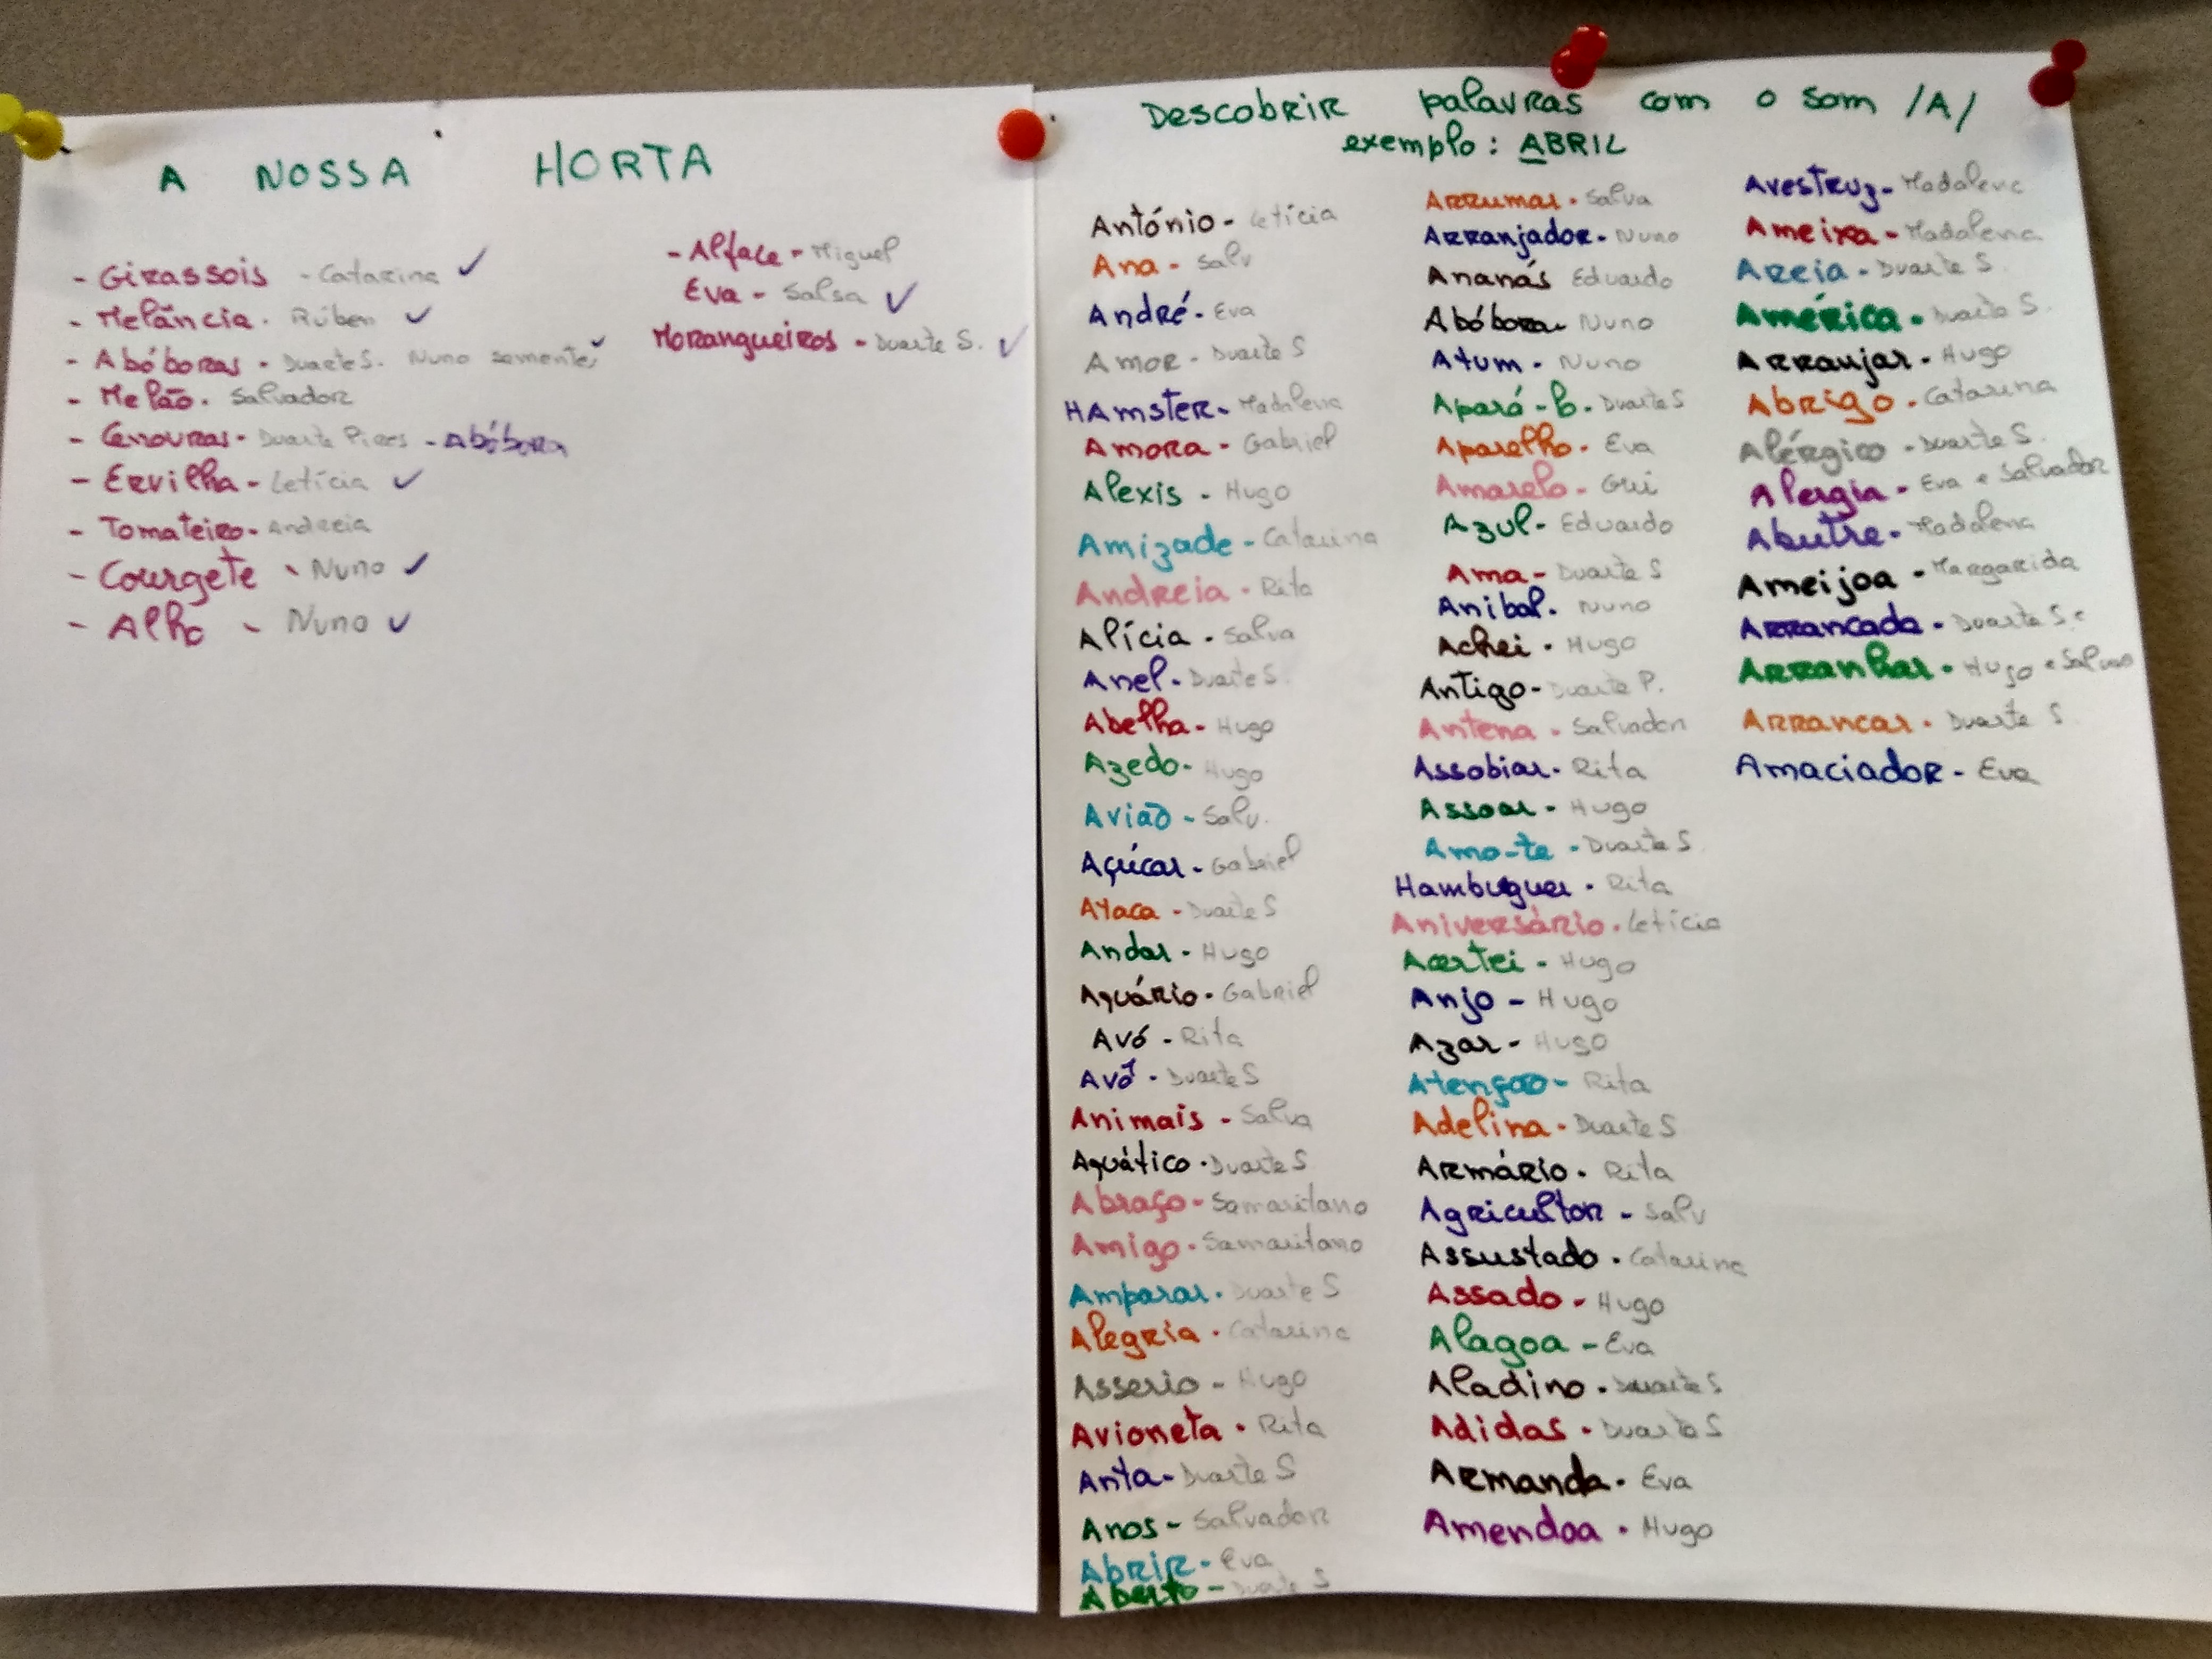 A NOSSA HORTA
- Girassois - Catarina ✓
- Melância - Rúben ✓
- Abóboras - Duarte S. Nuno semente ✓
- Melão - Salvador
- Cenouras - Duarte Pires - Abóbora
- Ervilha - Letícia ✓
- Tomateiro - Andreia
- Courgete - Nuno ✓
- Alho - Nuno ✓
- Alface - Miguel
Eva - Salsa ✓
Morangueiros - Duarte S. ✓
Descobrir palavras com o som /A/
exemplo: ABRIL
António - Letícia
Ana - Salv
André - Eva
Amor - Duarte S
HAmster - Madalena
Amora - Gabriel
Alexis - Hugo
Amizade - Catarina
Andreia - Rita
Alícia - Salva
Anel - Duarte S.
Abelha - Hugo
Azedo - Hugo
Avião - Salv.
Açúcar - Gabriel
Ataca - Duarte S
Andar - Hugo
Aquário - Gabriel
Avó - Rita
Avô - Duarte S
Animais - Salva
Aquático - Duarte S
Abraço - Samaritano
Amigo - Samaritano
Amparar - Duarte S
Alegria - Catarina
Asserio - Hugo
Avioneta - Rita
Anta - Duarte S
Anos - Salvador
Abrir - Eva
Aberto - Duarte S
Arrumar - Salva
Arranjador - Nuno
Ananás Eduardo
Abóbora - Nuno
Atum - Nuno
Apará-l - Duarte S
Aparelho - Eva
Amarelo - Gui
Azul - Eduardo
Ama - Duarte S
Anibal - Nuno
Achei - Hugo
Antigo - Duarte P.
Antena - Salvador
Assobiar - Rita
Assoar - Hugo
Amo-te - Duarte S
Hambuguer - Rita
Aniversário - Letícia
Acertei - Hugo
Anjo - Hugo
Azar - Hugo
Atenção - Rita
Adelina - Duarte S
Armário - Rita
Agricultor - Salv
Assustado - Catarina
Assado - Hugo
Alagoa - Eva
Aladino - Duarte S
Adidas - Duarte S
Armanda - Eva
Amendoa - Hugo
Avestruz - Madalena
Ameixa - Madalena
Areia - Duarte S.
América - Duarte S.
Arranjar - Hugo
Abrigo - Catarina
Alérgico - Duarte S.
Alergia - Eva e Salvador
Abutre - Madalena
Ameijoa - Margarida
Arrancada - Duarte S.
Arranhar - Hugo e
Arrancar - Duarte S
Amaciador - Eva